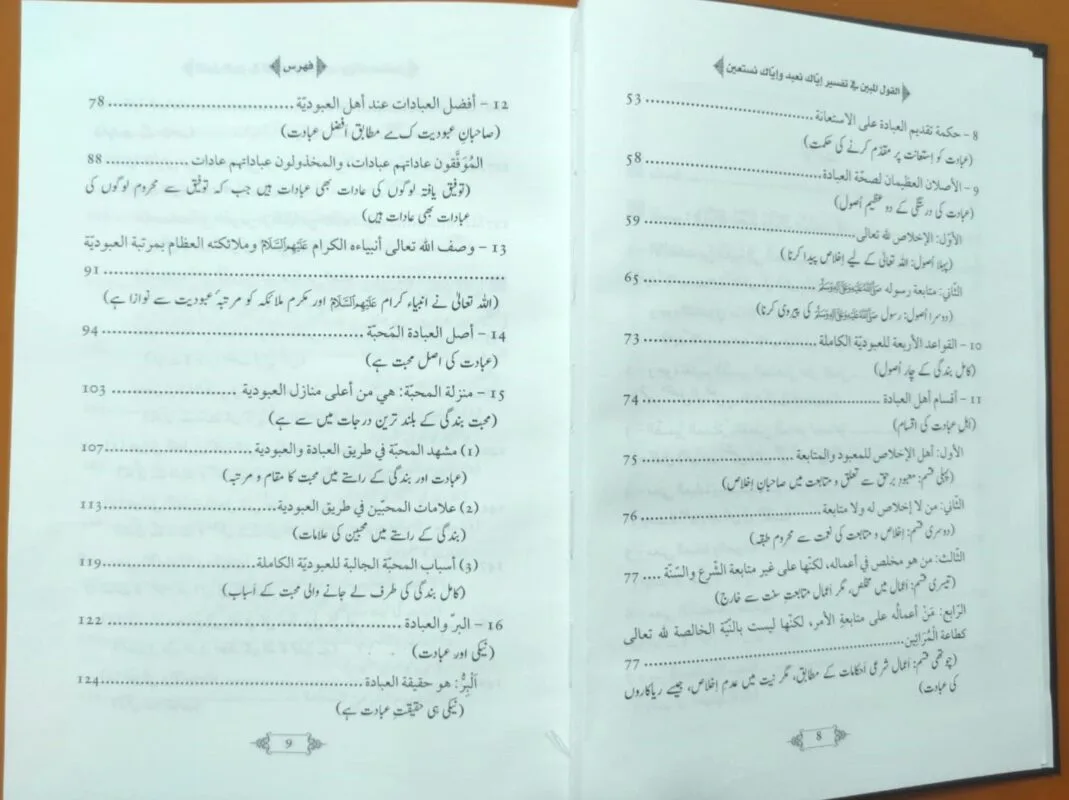 القول المبين في تفسير إيّاك نعبد وإيّاك نستعين
8 – حكمة تقديم العبادة على الاستعانة ........ 53
(عبادت کو اِستعانت پر مقدّم کرنے کی حکمت)
9 – الأصلان العظيمان لصحّة العبادة ........ 58
(عبادت کی درستگی کے دو عظیم اُصول)
الأوّل: الإخلاص لله تعالى ........ 59
(پہلا اُصول: اللہ تعالیٰ کے لیے اِخلاص پیدا کرنا)
الثّاني: متابعة رسوله ﷺ ........ 65
(دوسرا اُصول: رسول ﷺ کی پیروی کرنا)
10 – القواعد الأربعة للعبودية الكاملة ........ 73
(کامل بندگی کے چار اُصول)
11 – أقسام أهل العبادة ........ 74
(اہل عبادت کی اقسام)
الأول: أهل الإخلاص للمعبود والمتابعة ........ 75
(پہلی قسم: معبودِ برحق سے تعلق و متابعت میں صاحبانِ اِخلاص)
الثّاني: من لا إخلاص له ولا متابعة ........ 76
(دوسری قسم: اِخلاص و متابعت کی نعمت سے محروم طبقہ)
الثّالث: من هو مخلص في أعماله، لكنّها على غير متابعة الشّرع والسّنّة .... 77
(تیسری قسم: اَعمال میں مخلص، مگر اَعمال متابعتِ سنت سے خارج)
الرّابع: مَنْ أعمالُه على متابعةِ الأمر، لكنّها ليست بالنّيّة الخالصة لله تعالى
كطاعة الْمُرَائِين ........ 77
(چوتھی قسم: اَعمال شرعی اَحکامات کے مطابق، مگر نیت میں عدمِ اِخلاص، جیسے ریاکاروں
کی عبادت)
8
فهرس
12 – أفضل العبادات عند أهل العبوديّة ........ 78
(صاحبانِ عبودیت کے مطابق اَفضل عبادت)
المُوَفَّقون عاداتهم عبادات، والمخذولون عباداتهم عادات ........ 88
(توفیق یافتہ لوگوں کی عادات بھی عبادات ہیں جب کہ توفیق سے محروم لوگوں کی
عبادات بھی عادات ہیں)
13 – وصف الله تعالى أنبياءه الكرام عَلَيْهِمُ السَّلَامُ وملائكته العظام بمرتبة العبوديّة
........ 91
(اللہ تعالیٰ نے انبیاء کرام عَلَيْهِمُ السَّلَامُ اور مکرم ملائکہ کو مرتبۂ عبودیت سے نوازا ہے)
14 – أصل العبادة المَحبّة ........ 94
(عبادت کی اصل محبت ہے)
15 – منزلة المحبّة: هي من أعلى منازل العبودية ........ 103
(محبت بندگی کے بلند ترین درجات میں سے ہے)
(1) مشهد المحبّة في طريق العبادة والعبودية ........ 107
(عبادت اور بندگی کے راستے میں محبت کا مقام و مرتبہ)
(2) علامات المحبّين في طريق العبودية ........ 113
(بندگی کے راستے میں محبین کی علامات)
(3) أسباب المحبّة الجالبة للعبوديّة الكاملة ........ 119
(کامل بندگی کی طرف لے جانے والی محبت کے اَسباب)
16 – البرّ والعبادة ........ 122
(نیکی اور عبادت)
اَلْبِرُّ: هو حقيقة العبادة ........ 124
(نیکی ہی حقیقتِ عبادت ہے)
9